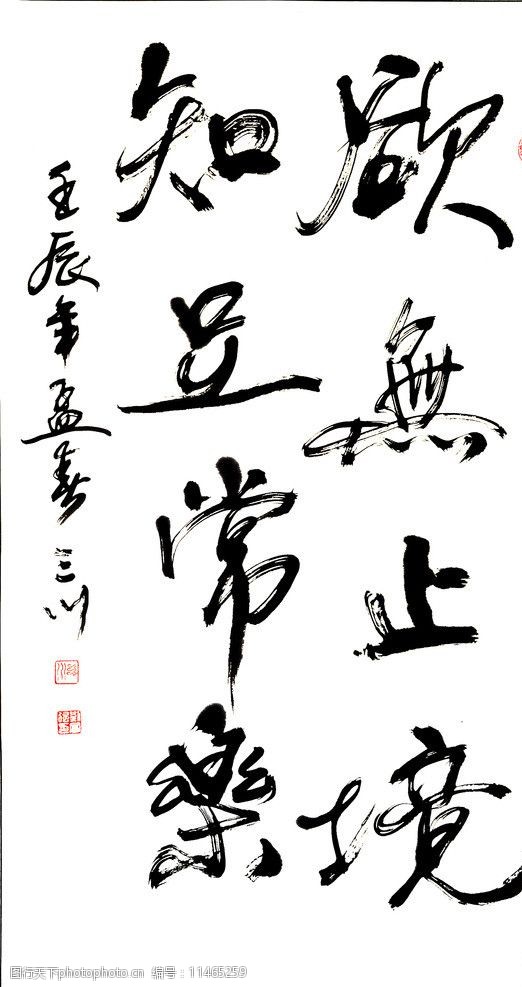 欲無止境
知足常樂
壬辰年孟春三川
图行天下photophoto.cn 编号:11465259